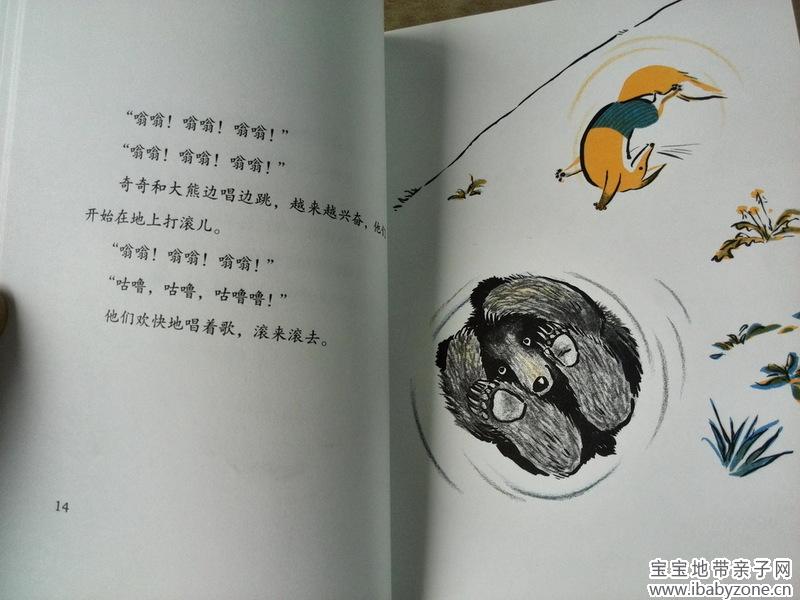 “嗡嗡！嗡嗡！嗡嗡！”
“嗡嗡！嗡嗡！嗡嗡！”
奇奇和大熊边唱边跳，越来越兴奋，他们
开始在地上打滚儿。
“嗡嗡！嗡嗡！嗡嗡！”
“咕噜，咕噜，咕噜噜！”
他们欢快地唱着歌，滚来滚去。
14
宝宝地带亲子网
www.ibabyzone.cn